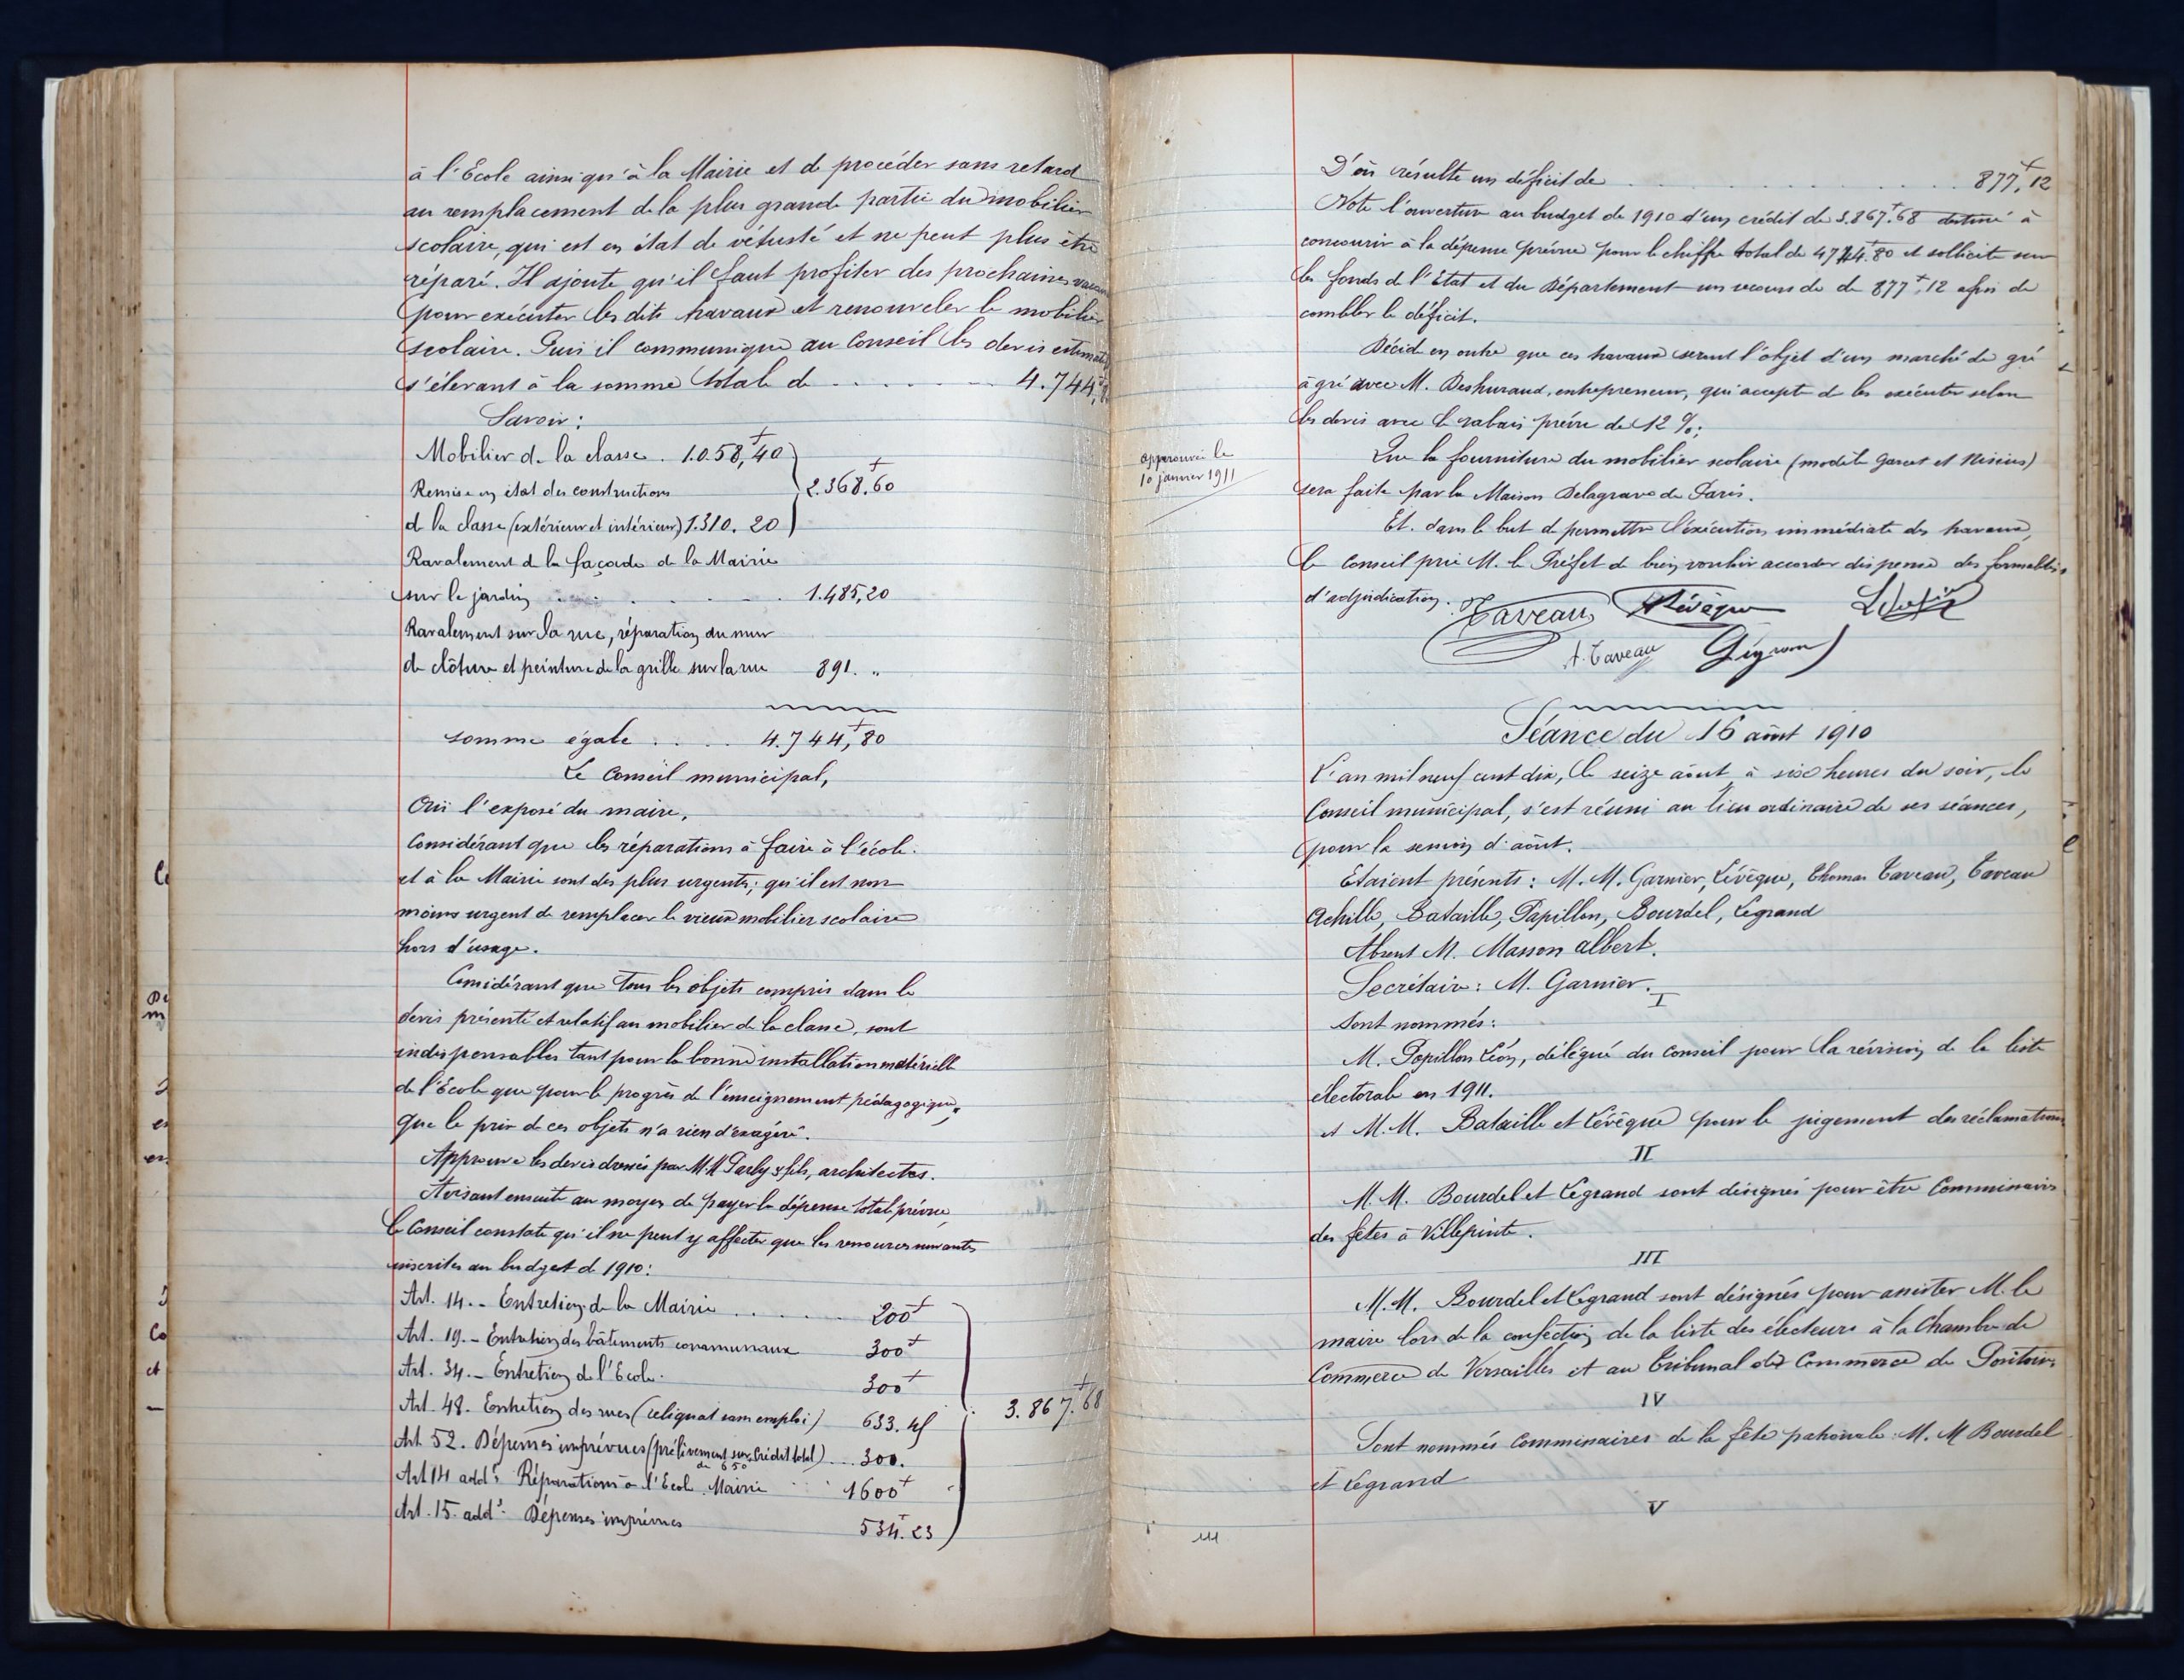 à l'Ecole ainsi qu'à la Mairie et de procéder sans retard
au remplacement de la plus grande partie du mobilier
scolaire, qui est en état de vétusté et ne peut plus être
réparé. Il ajoute qu'il faut profiter des prochaines
pour exécuter les dits travaux et renouveler le mobilier
scolaire. Puis il communique au Conseil les devis
s'élevant à la somme totale de 4.744
Savoir:
Mobilier de la classe. 1.058,40
Remise en état des constructions 2.368.60
de la classe (extérieur et intérieur) 1.310.20
Ravalement de la façade de la Mairie
sur le jardin . . . 1.485,20
Ravalement sur la rue, réparation du mur
de clôture et peinture de la grille sur la rue 891. "
somme égale . . . . 4.744,80
Le Conseil municipal,
Ouï l'exposé du maire,
Considérant que les réparations à faire à l'école
et à la Mairie sont des plus urgentes; qu'il est non
moins urgent de remplacer le vieux mobilier scolaire
hors d'usage.
Considérant que tous les objets compris dans le
devis présenté et relatif au mobilier de la classe, sont
indispensables tant pour la bonne installation matérielle
de l'Ecole que pour le progrès de l'enseignement pédagogique,
que le prix de ces objets n'a rien d'exagéré.
Approuve les devis dressés par M.M. & fils, architectes.
Avisant ensuite au moyen de payer la dépense totale prévue,
le Conseil constate qu'il ne peut y affecter que les ressources suivantes
inscrites au budget de 1910:
Art. 14. - Entretien de la Mairie . . . 200f
Art. 19. - Entretien des bâtiments communaux 300f
Art. 34. - Entretien de l'Ecole. 300f
Art. 48. Entretien des rues (reliquat sans emploi) 633.45 3.867f.68
Art 52. Dépenses imprévues (prélèvement sur Crédit total) 300.
de 650
Art 14 addt Réparations à l'Ecole Mairie 1600f
Art. 15. addt Dépenses imprévues 534f.23
D'où résulte un déficit de . . . 877f,12
Vote l'ouverture au budget de 1910 d'un crédit de 3.867f.68 destiné à
concourir à la dépense prévue pour le chiffre total de 4744f.80 et sollicite sur
les fonds de l'Etat et du Département un secours de de 877f.12 afin de
combler le déficit.
Décide en outre que ces travaux seront l'objet d'un marché de gré
à gré avec M. entrepreneur, qui accepte de les exécuter selon
les devis avec le rabais prévu de 12 %;
approuvé le
10 janvier 1911
Que la fourniture du mobilier scolaire (modèle Garcet et Nisius)
sera faite par la Maison Delagrave de Paris.
Et dans le but de permettre l'exécution immédiate des travaux,
le Conseil prie M. le Préfet de bien vouloir accorder dispense des formalités
d'adjudication. Taveau Lévêque
A. Taveau
Séance du 16 août 1910
L'an mil neuf cent dix, le seize août à six heures du soir, le
Conseil municipal, s'est réuni au lieu ordinaire de ses séances,
pour la session d'août.
Etaient présents: M.M. Garnier, Lévêque, Thomas Taveau, Taveau
Achille, Bataille, Papillon, Bourdel, Legrand
Absent M. Masson Albert.
Secrétaire: M. Garnier.
I
Sont nommés:
M. Papillon Léon, délégué du Conseil pour la révision de la liste
électorale en 1911.
et M.M. Bataille et Lévêque pour le jugement des réclamations
II
M.M. Bourdel et Legrand sont désignés pour être Commissaires
des fêtes à Villepinte.
III
M.M. Bourdel et Legrand sont désignés pour assister M. le
maire lors de la confection de la liste des électeurs à la Chambre de
Commerce de Versailles et au Tribunal de Commerce de Pontoise
IV
Sont nommés Commissaires de la fête patronale M. M Bourdel
et Legrand
V
111